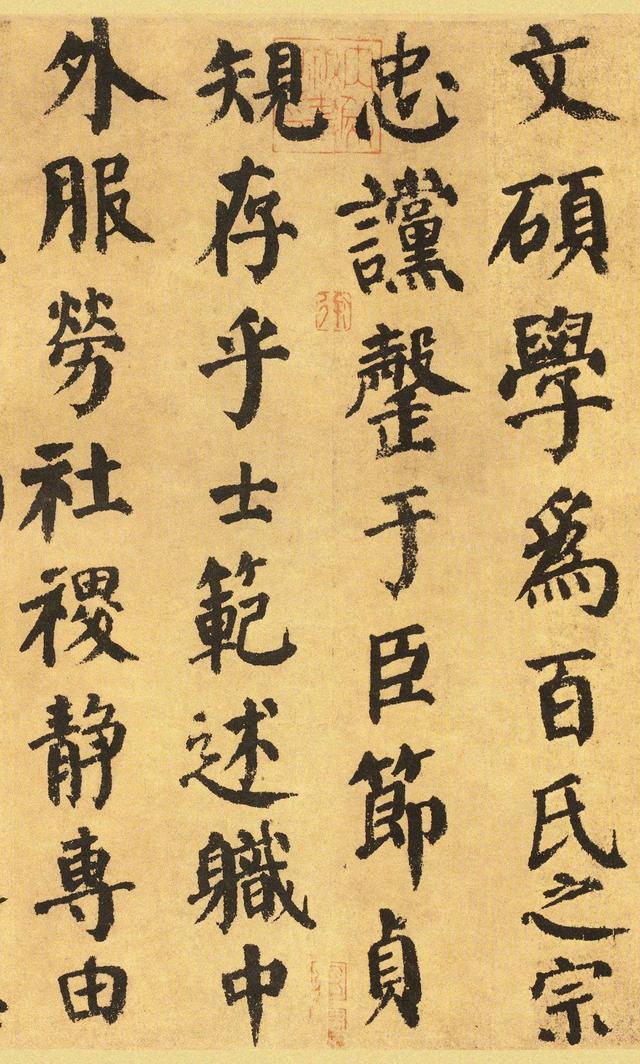 文碩學爲百氏之宗
忠讜罄于臣節貞
規存乎士範述職中
外服勞社稷静專由